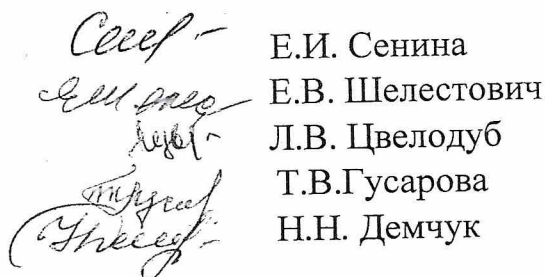 Е.И. Сенина
Е.В. Шелестович
Л.В. Цвелодуб
Т.В.Гусарова
Н.Н. Демчук